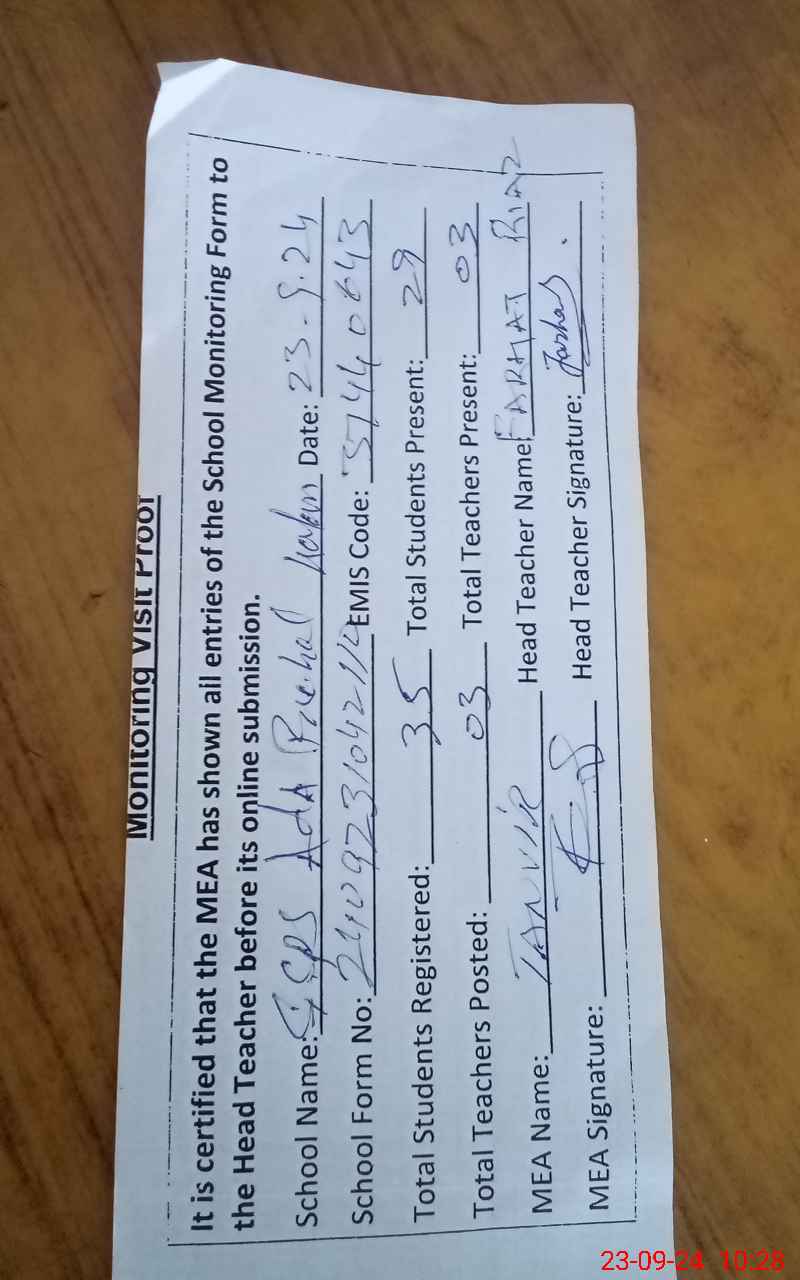 Monitoring Visit Proof
It is certified that the MEA has shown all entries of the School Monitoring Form to
the Head Teacher before its online submission.
School Name: GGPS Adda Date: 23-9-24
School Form No: EMIS Code: 37440643
Total Students Registered: 35 Total Students Present: 29
Total Teachers Posted: 03 Total Teachers Present: 03
MEA Name: TANVIR Head Teacher Name: FARHAT RIAZ
MEA Signature: Head Teacher Signature: Farhat.
23-09-24 10:28